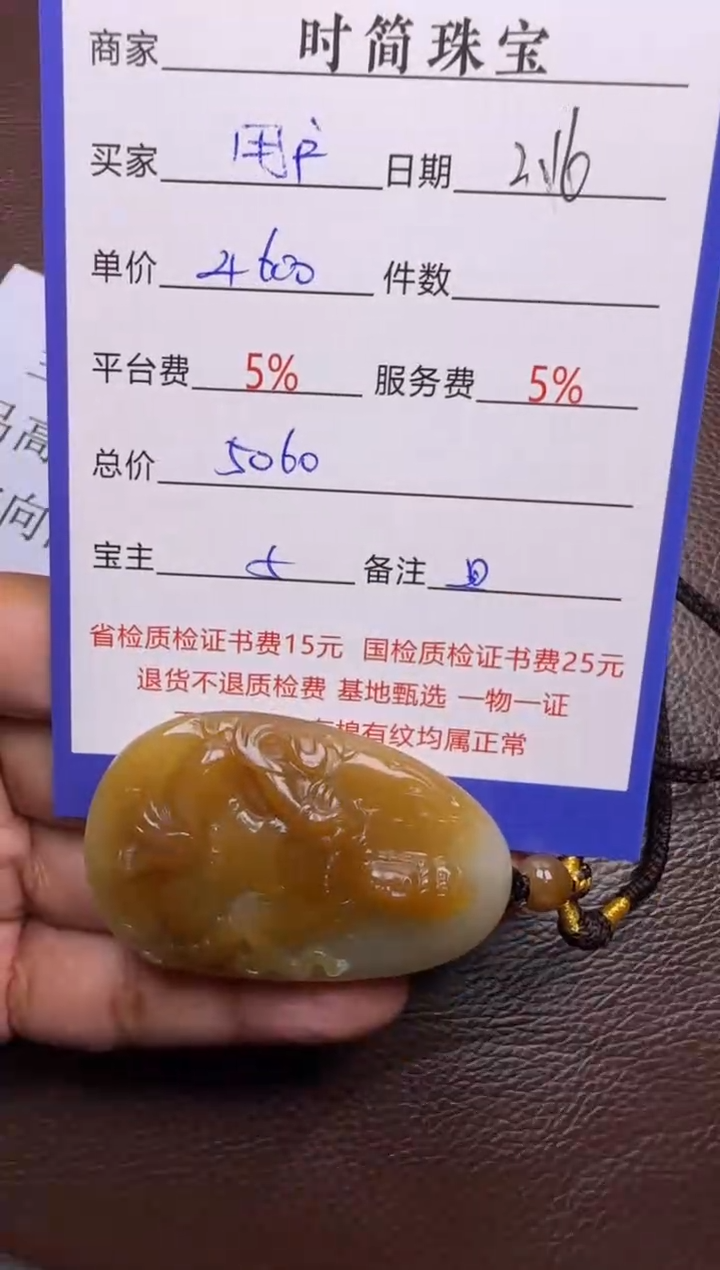 商家 时简珠宝
买家 用户 日期 2.16
单价 4600 件数
平台费 5% 服务费 5%
总价 5060
宝主 备注
省检质检证书费15元 国检质检证书费25元
退货不退质检费 基地甄选 一物一证
有纹均属正常
高
向